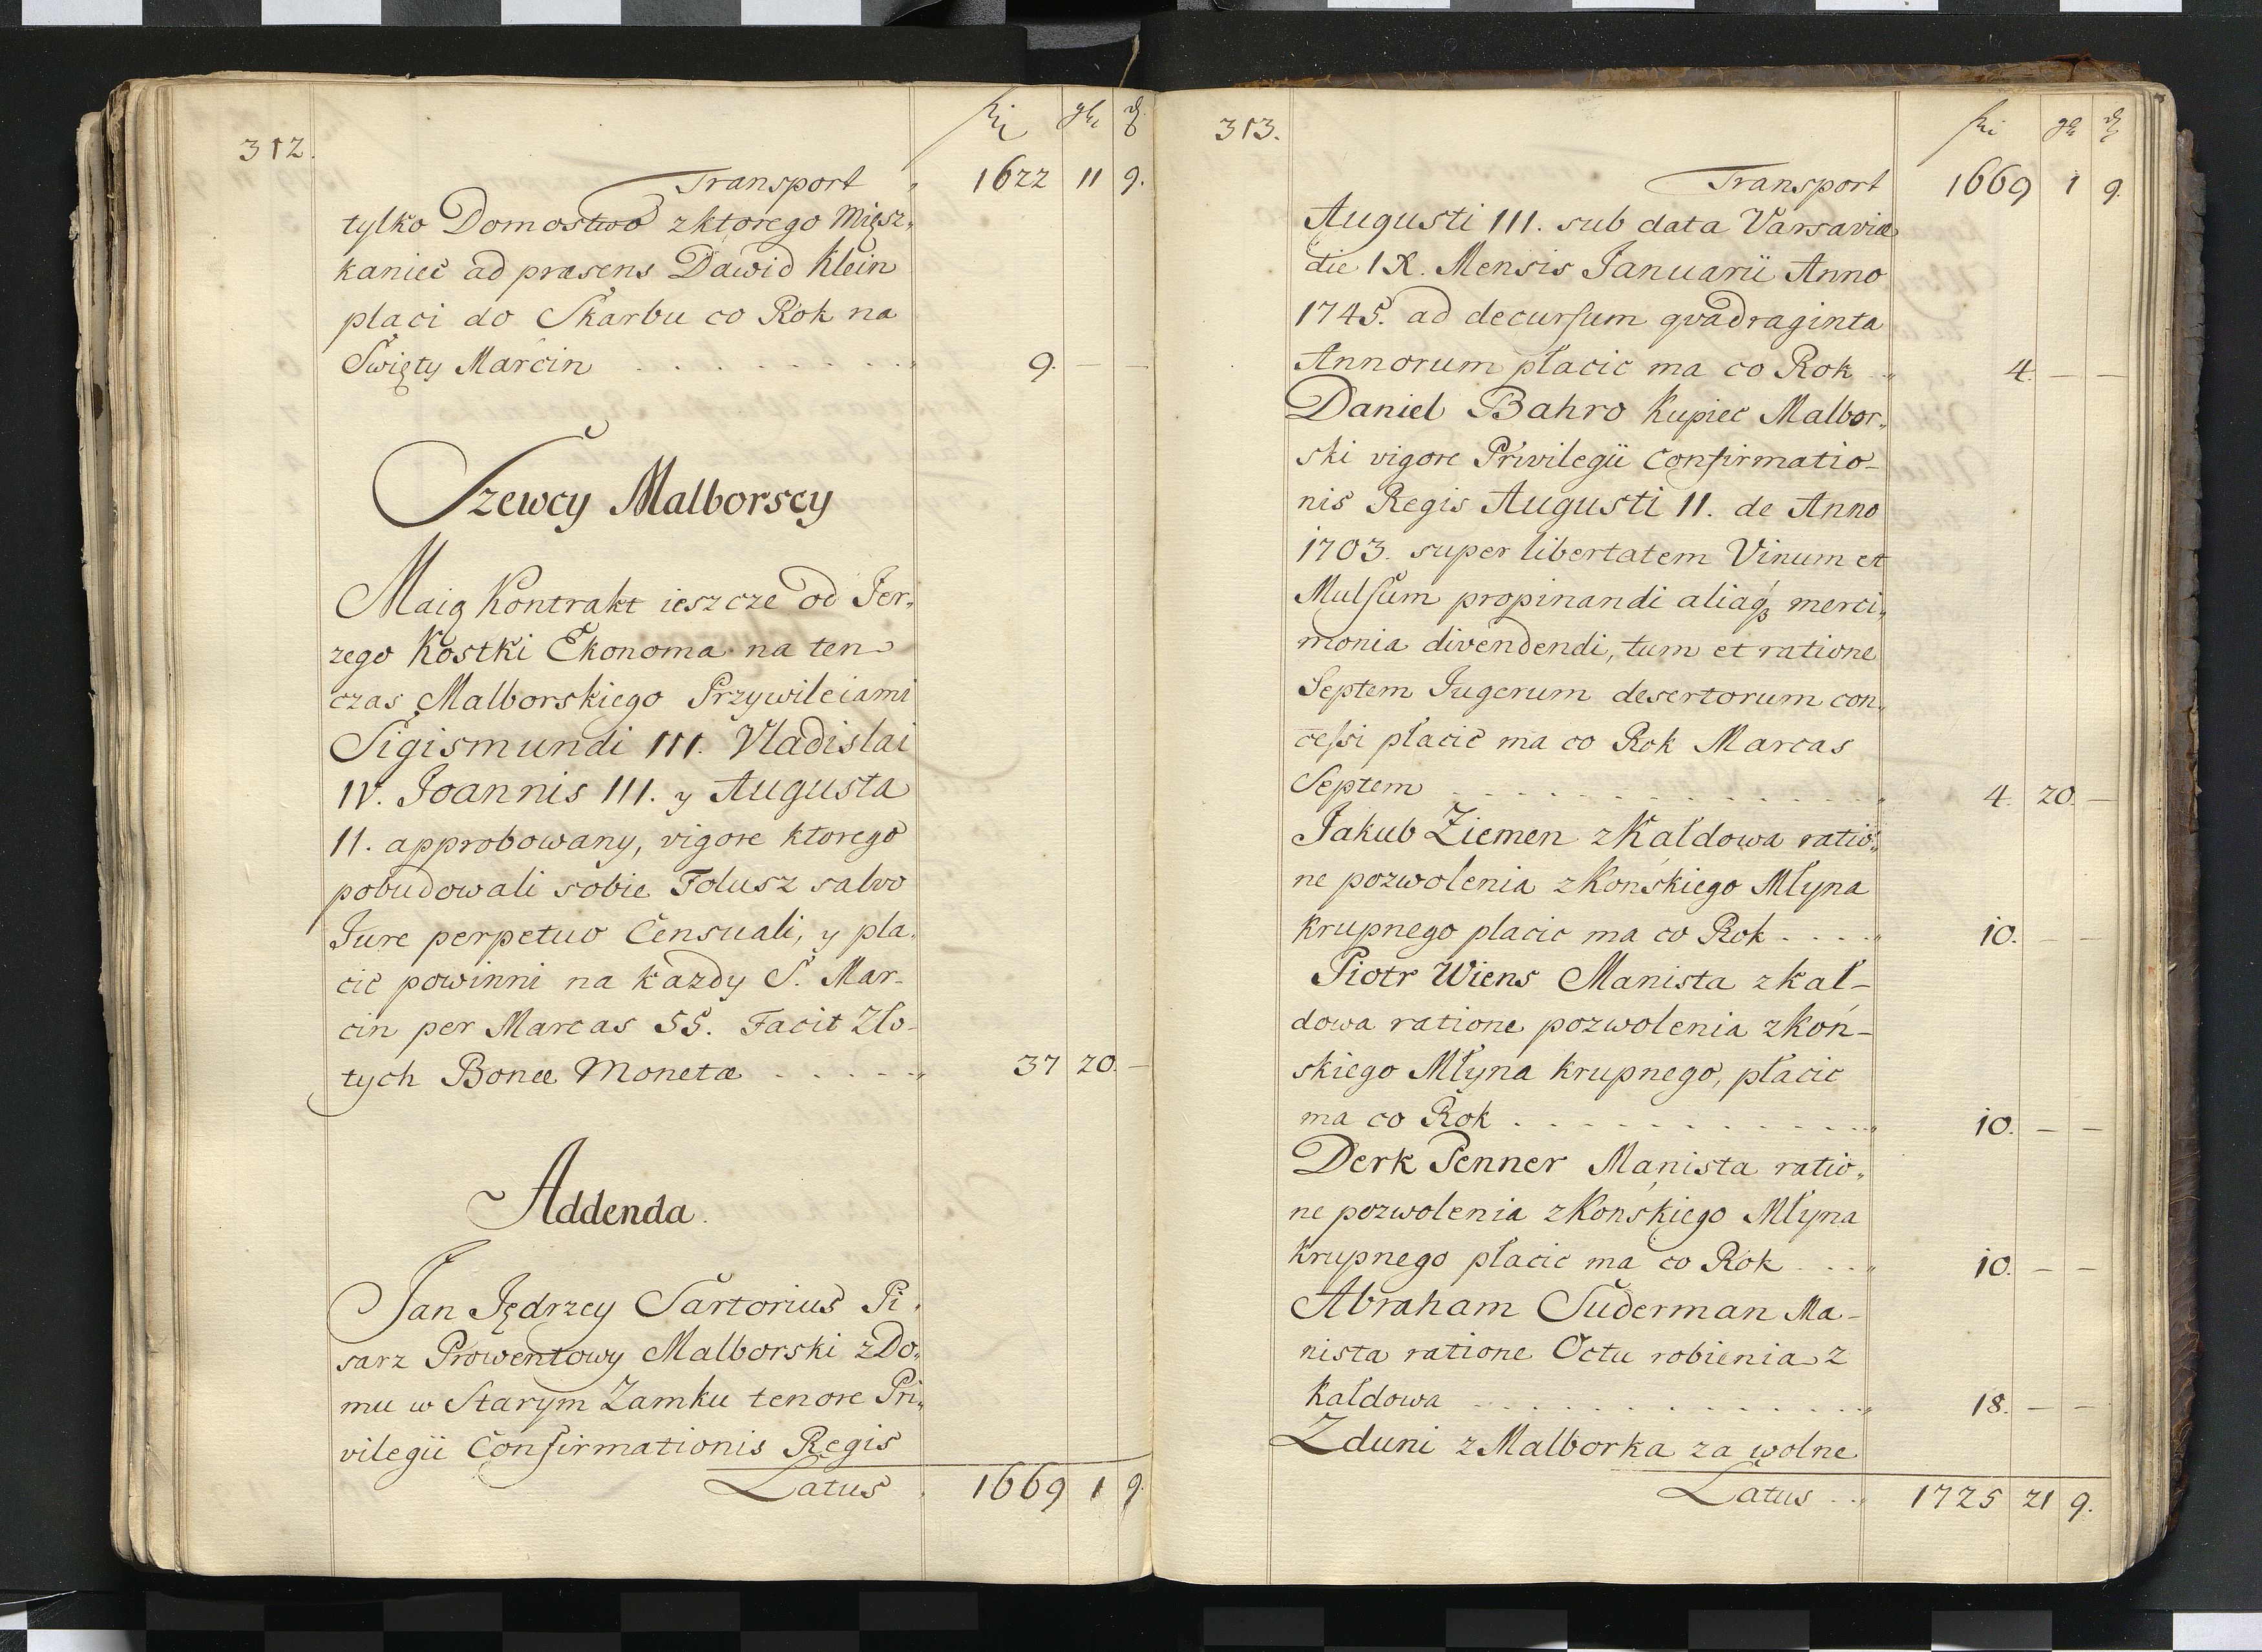 312.
fl gr ₰
Transport „ 1622 11 9.
tylko Domostwo z ktorego Mięsz„
kaniec ad præsens Dawid Klein
placi do Skarbu co Rok na
Swięty Marcin . . . . . . . „ 9. — —
Szewcy Malborscy
Maią Kontrakt ieszcze od Jer„
zego Kostki Ekonoma na ten
czas Malborskiego Przywileiami
Sigismundi III. Vladislai
IV. Joannis III. y Augusta
II. approbowany, vigore ktorego
pobudowali sobie Folusz salvo
Jure perpetuo Censuali, y pla„
cić powinni na kazdy S. Mar-
cin per Marcas 55. Facit Zło-
tych Bonæ Monetæ . . . . . „ 37 20. —
Addenda.
Jan Jędrzey Sartorius Pi„
sarz Prowentowy Malborski z Do„
mu w Starym Zamku tenore Pri„
vilegii Confirmationis Regis
Latus . 1669 1 9.
313.
fl gr ₰
Transport 1669 1 9.
Augusti III. sub data Varsaviæ
die IX. Mensis Januarii Anno
1745. ad decursum qvadraginta
Annorum płacic ma co Rok „ 4. — —
Daniel Bahro Kupiec Malbor„
ski vigore Privilegii Confirmatio-
nis Regis Augusti II. de Anno
1703. super libertatem Vinum et
Mulsum propinandi aliaq merci„
monia divendendi, tum et ratione
Septem Jugerum desertorum con„
cessi płacić ma co Rok Marcas
Septem . . . . . . . . . . . . „ 4. 20. —
Jakub Ziemen z Kałdowa ratio„
ne pozwolenia z Końskiego Młyna
krupnego placic ma co Rok . . . . „ 10. — —
Piotr Wiens Manista z Kał-
dowa ratione pozwolenia z Koń-
skiego Młyna krupnego, płacic
ma co Rok . . . . . . . . . . . „ 10. — —
Derk Penner Manista ratio„
ne pozwolenia z Końskiego Młyna
krupnego płacic ma co Rok . . . „ 10. — —
Abraham Suderman Ma-
nista ratione Octu robienia z
Kałdowa . . . . . . . . . . . „ 18. — —
Zduni z Malborka za wolne
Latus . . „ 1725 21 9.